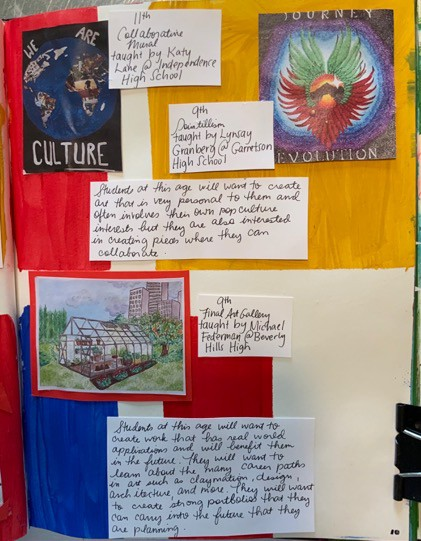 WE ARE
CULTURE
11th
Collaborative
Mural
taught by Katy
Lane @ Independence
High School
JOURNEY
EVOLUTION
9th
Pointillism
taught by Lynsay
Granberg @ Garretson
High School
Students at this age will want to create
art that is very personal to them and
often involves their own pop culture
interests but they are also interested
in creating pieces where they can
collaborate.
9th
Final Art Gallery
taught by Michael
Federman @ Beverly
Hills High
Students at this age will want to
create work that has real world
applications and will benefit them
in the future. They will want to
learn about the many career paths
in art such as claymation, design,
architecture and more. They will want
to create strong portfolios that they
can carry into the future that they
are planning.
10